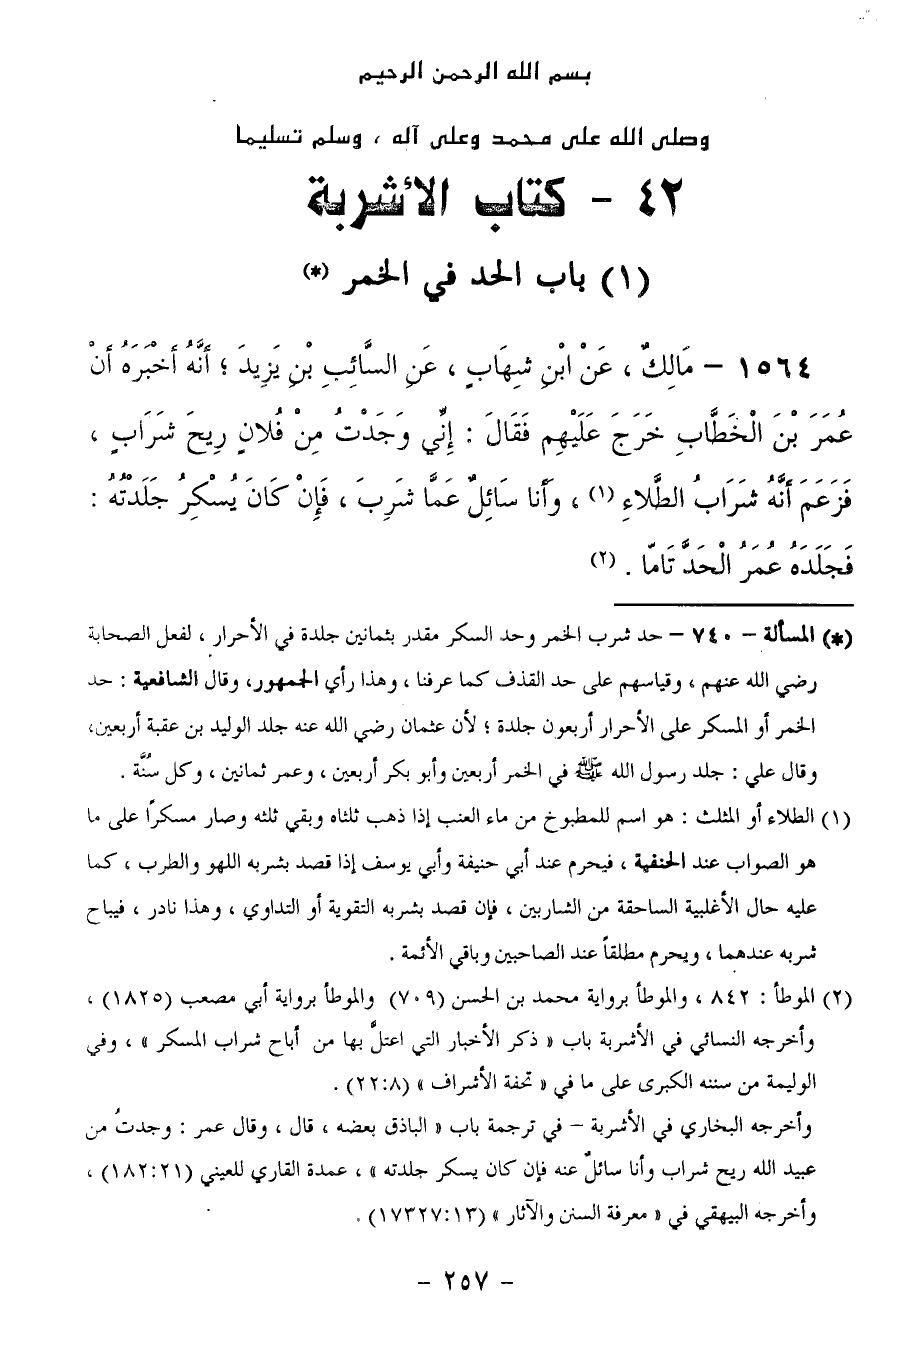 بسم الله الرحمن الرحيم
وصلى الله على محمد وعلى آله ، وسلم تسليما
٤٢ - كتاب الأشربة
(١) باب الحد في الخمر (*)
١٥٦٤ – مَالِكٌ ، عَنْ ابْنِ شِهَابٍ ، عَنِ السَّائِبِ بْنِ يَزِيدَ ؛ أَنَّهُ أَخْبَرَهُ أَنْ
عُمَرَ بْنَ الْخَطَّابِ خَرَجَ عَلَيْهِم فَقَالَ : إِنِّي وَجَدْتُ مِنْ فُلَانٍ رِيحَ شَرَابٍ ،
فَزَعَمَ أَنَّهُ شَرَابُ الطَّلاءِ (١) ، وَأَنا سَائِلٌ عَمَّا شَرِبَ ، فَإِنْ كَانَ يُسْكِرُ جَلَدْتُهُ :
فَجَلَدَهُ عُمَرُ الْحَدَّ تَامّا . (٢)
(*) المسألة – ٧٤٠ – حد شرب الخمر وحد السكر مقدر بثمانين جلدة في الأحرار ، لفعل الصحابة
رضي الله عنهم ، وقياسهم على حد القذف كما عرفنا ، وهذا رأي الجمهور، وقال الشافعية : حد
الخمر أو المسكر على الأحرار أربعون جلدة ؛ لأن عثمان رضي الله عنه جلد الوليد بن عقبة أربعين،
وقال علي : جلد رسول الله ﷺ في الخمر أربعين وأبو بكر أربعين ، وعمر ثمانين ، وكل سُنَّة .
(١) الطلاء أو المثلث : هو اسم للمطبوخ من ماء العنب إذا ذهب ثلثاه وبقي ثلثه وصار مسكراً على ما
هو الصواب عند الحنفية ، فيحرم عند أبي حنيفة وأبي يوسف إذا قصد بشربه اللهو والطرب ، كما
عليه حال الأغلبية الساحقة من الشاربين ، فإن قصد بشربه التقوية أو التداوي ، وهذا نادر ، فيباح
شربه عندهما ، ويحرم مطلقاً عند الصاحبين وباقي الأئمة .
(٢) الموطأ : ٨٤٢ ، والموطأ برواية محمد بن الحسن (٧٠٩) والموطأ برواية أبي مصعب (١٨٢٥) ،
وأخرجه النسائي في الأشربة باب « ذكر الأخبار التي اعتلَّ بها من أباح شراب المسكر » ، وفي
الوليمة من سننه الكبرى على ما في « تحفة الأشراف » (٢٢:٨) .
وأخرجه البخاري في الأشربة – في ترجمة باب « الباذق بعضه ، قال ، وقال عمر : وجدتُ من
عبيد الله ريح شراب وأنا سائلٌ عنه فإن كان يسكر جلدته » ، عمدة القاري للعيني (١٨٢:٢١) ،
وأخرجه البيهقي في « معرفة السنن والآثار » (١٧٣٢٧:١٣) .
- ٢٥٧ -